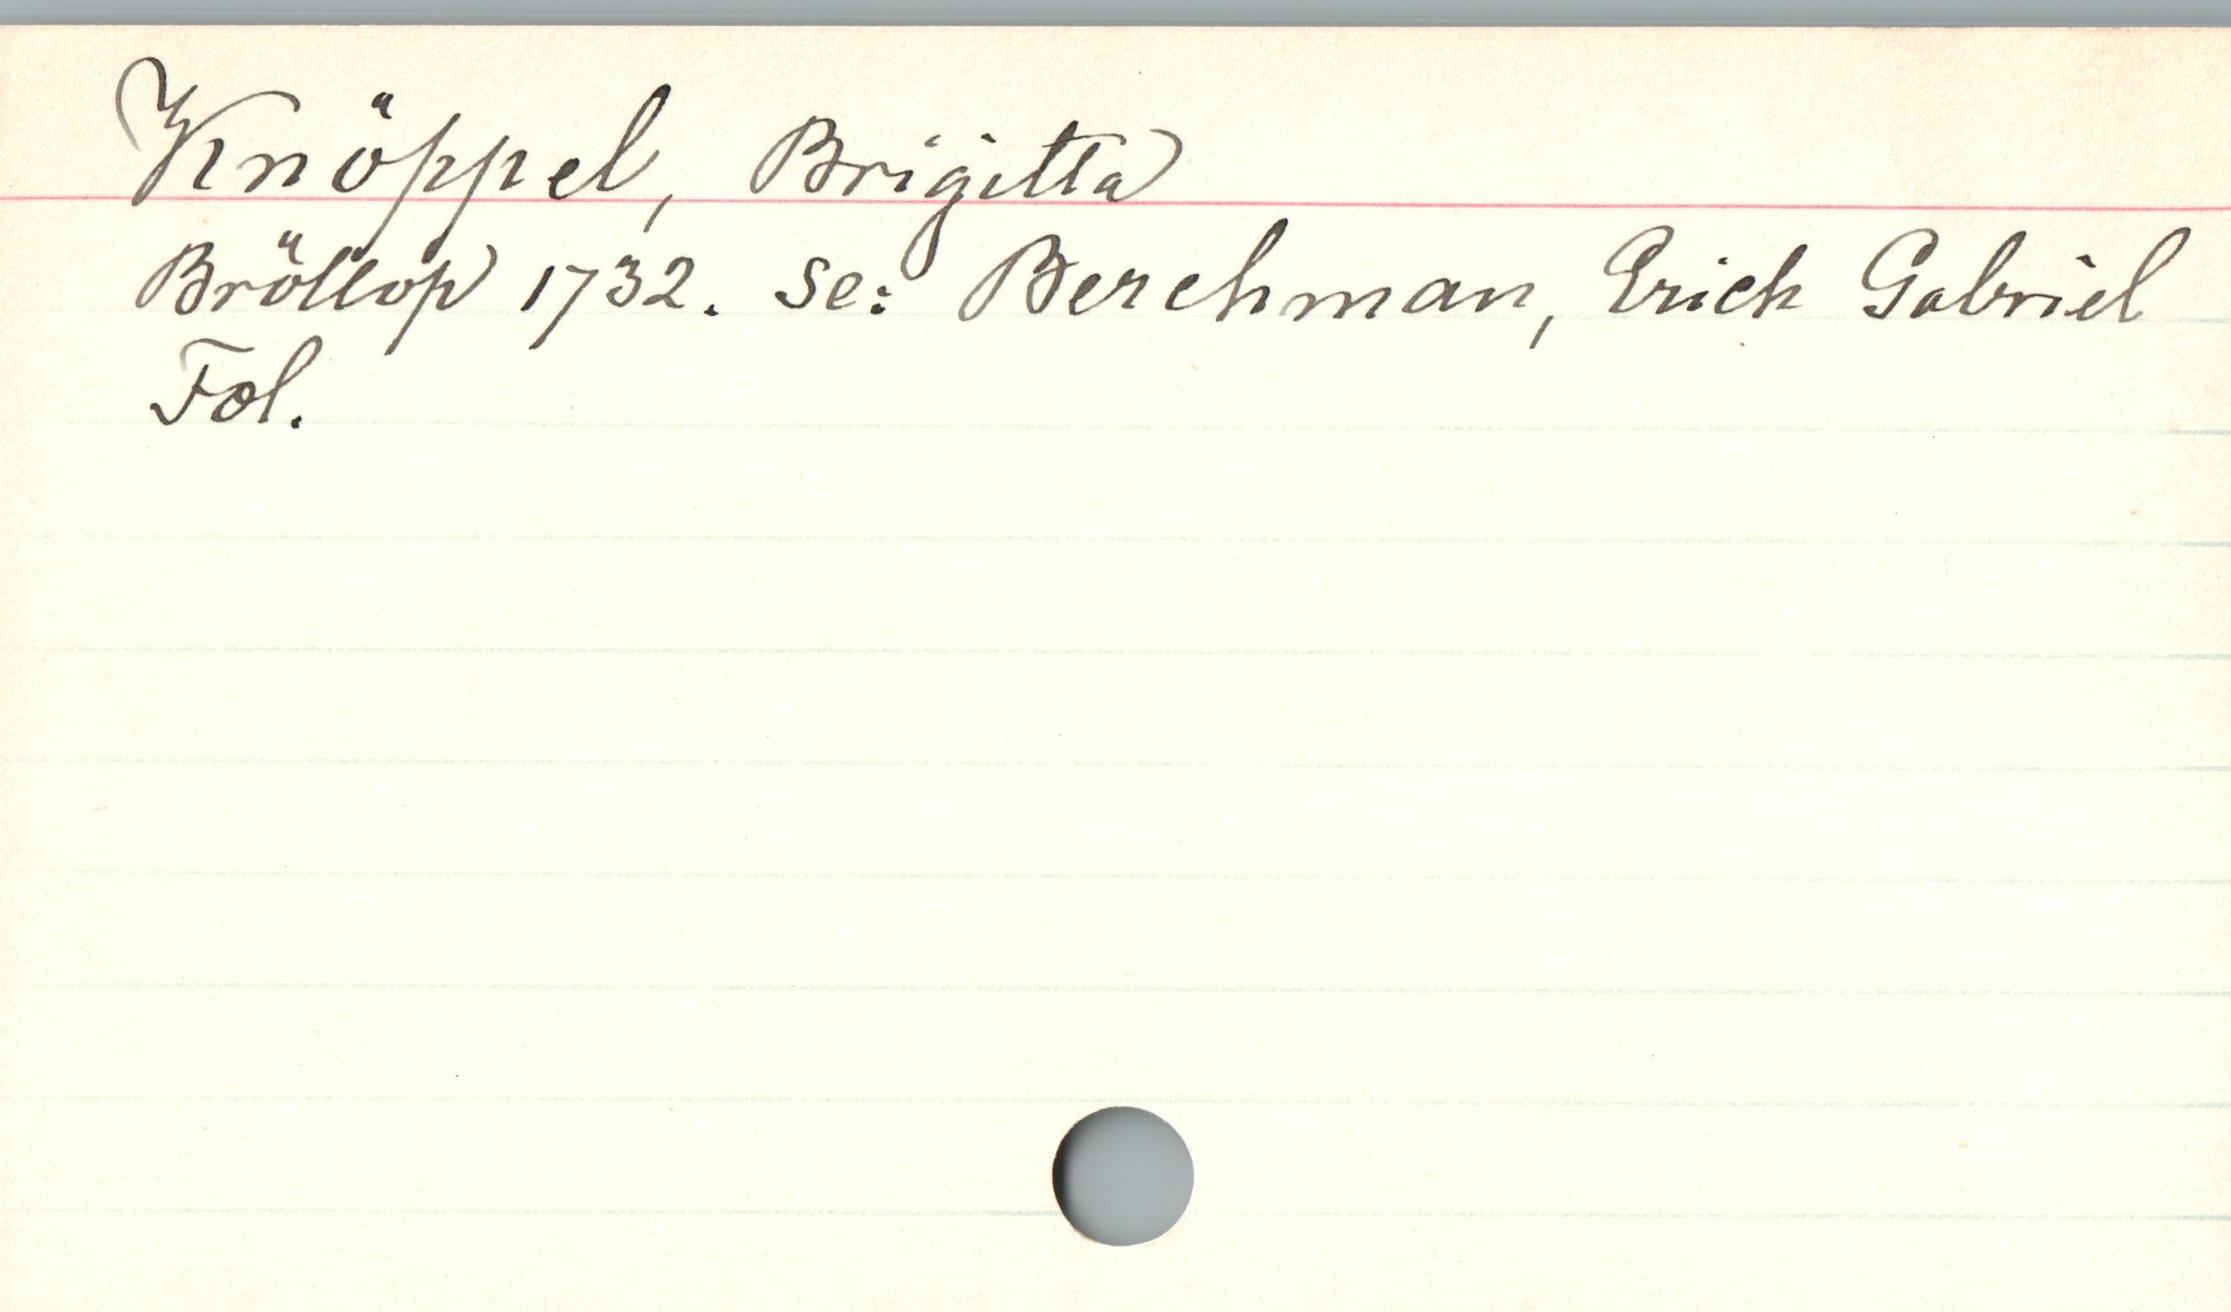 Knöppel, Brigitta
Bröllop 1732. Se: Berchman, Erich Gabriel
Fol.